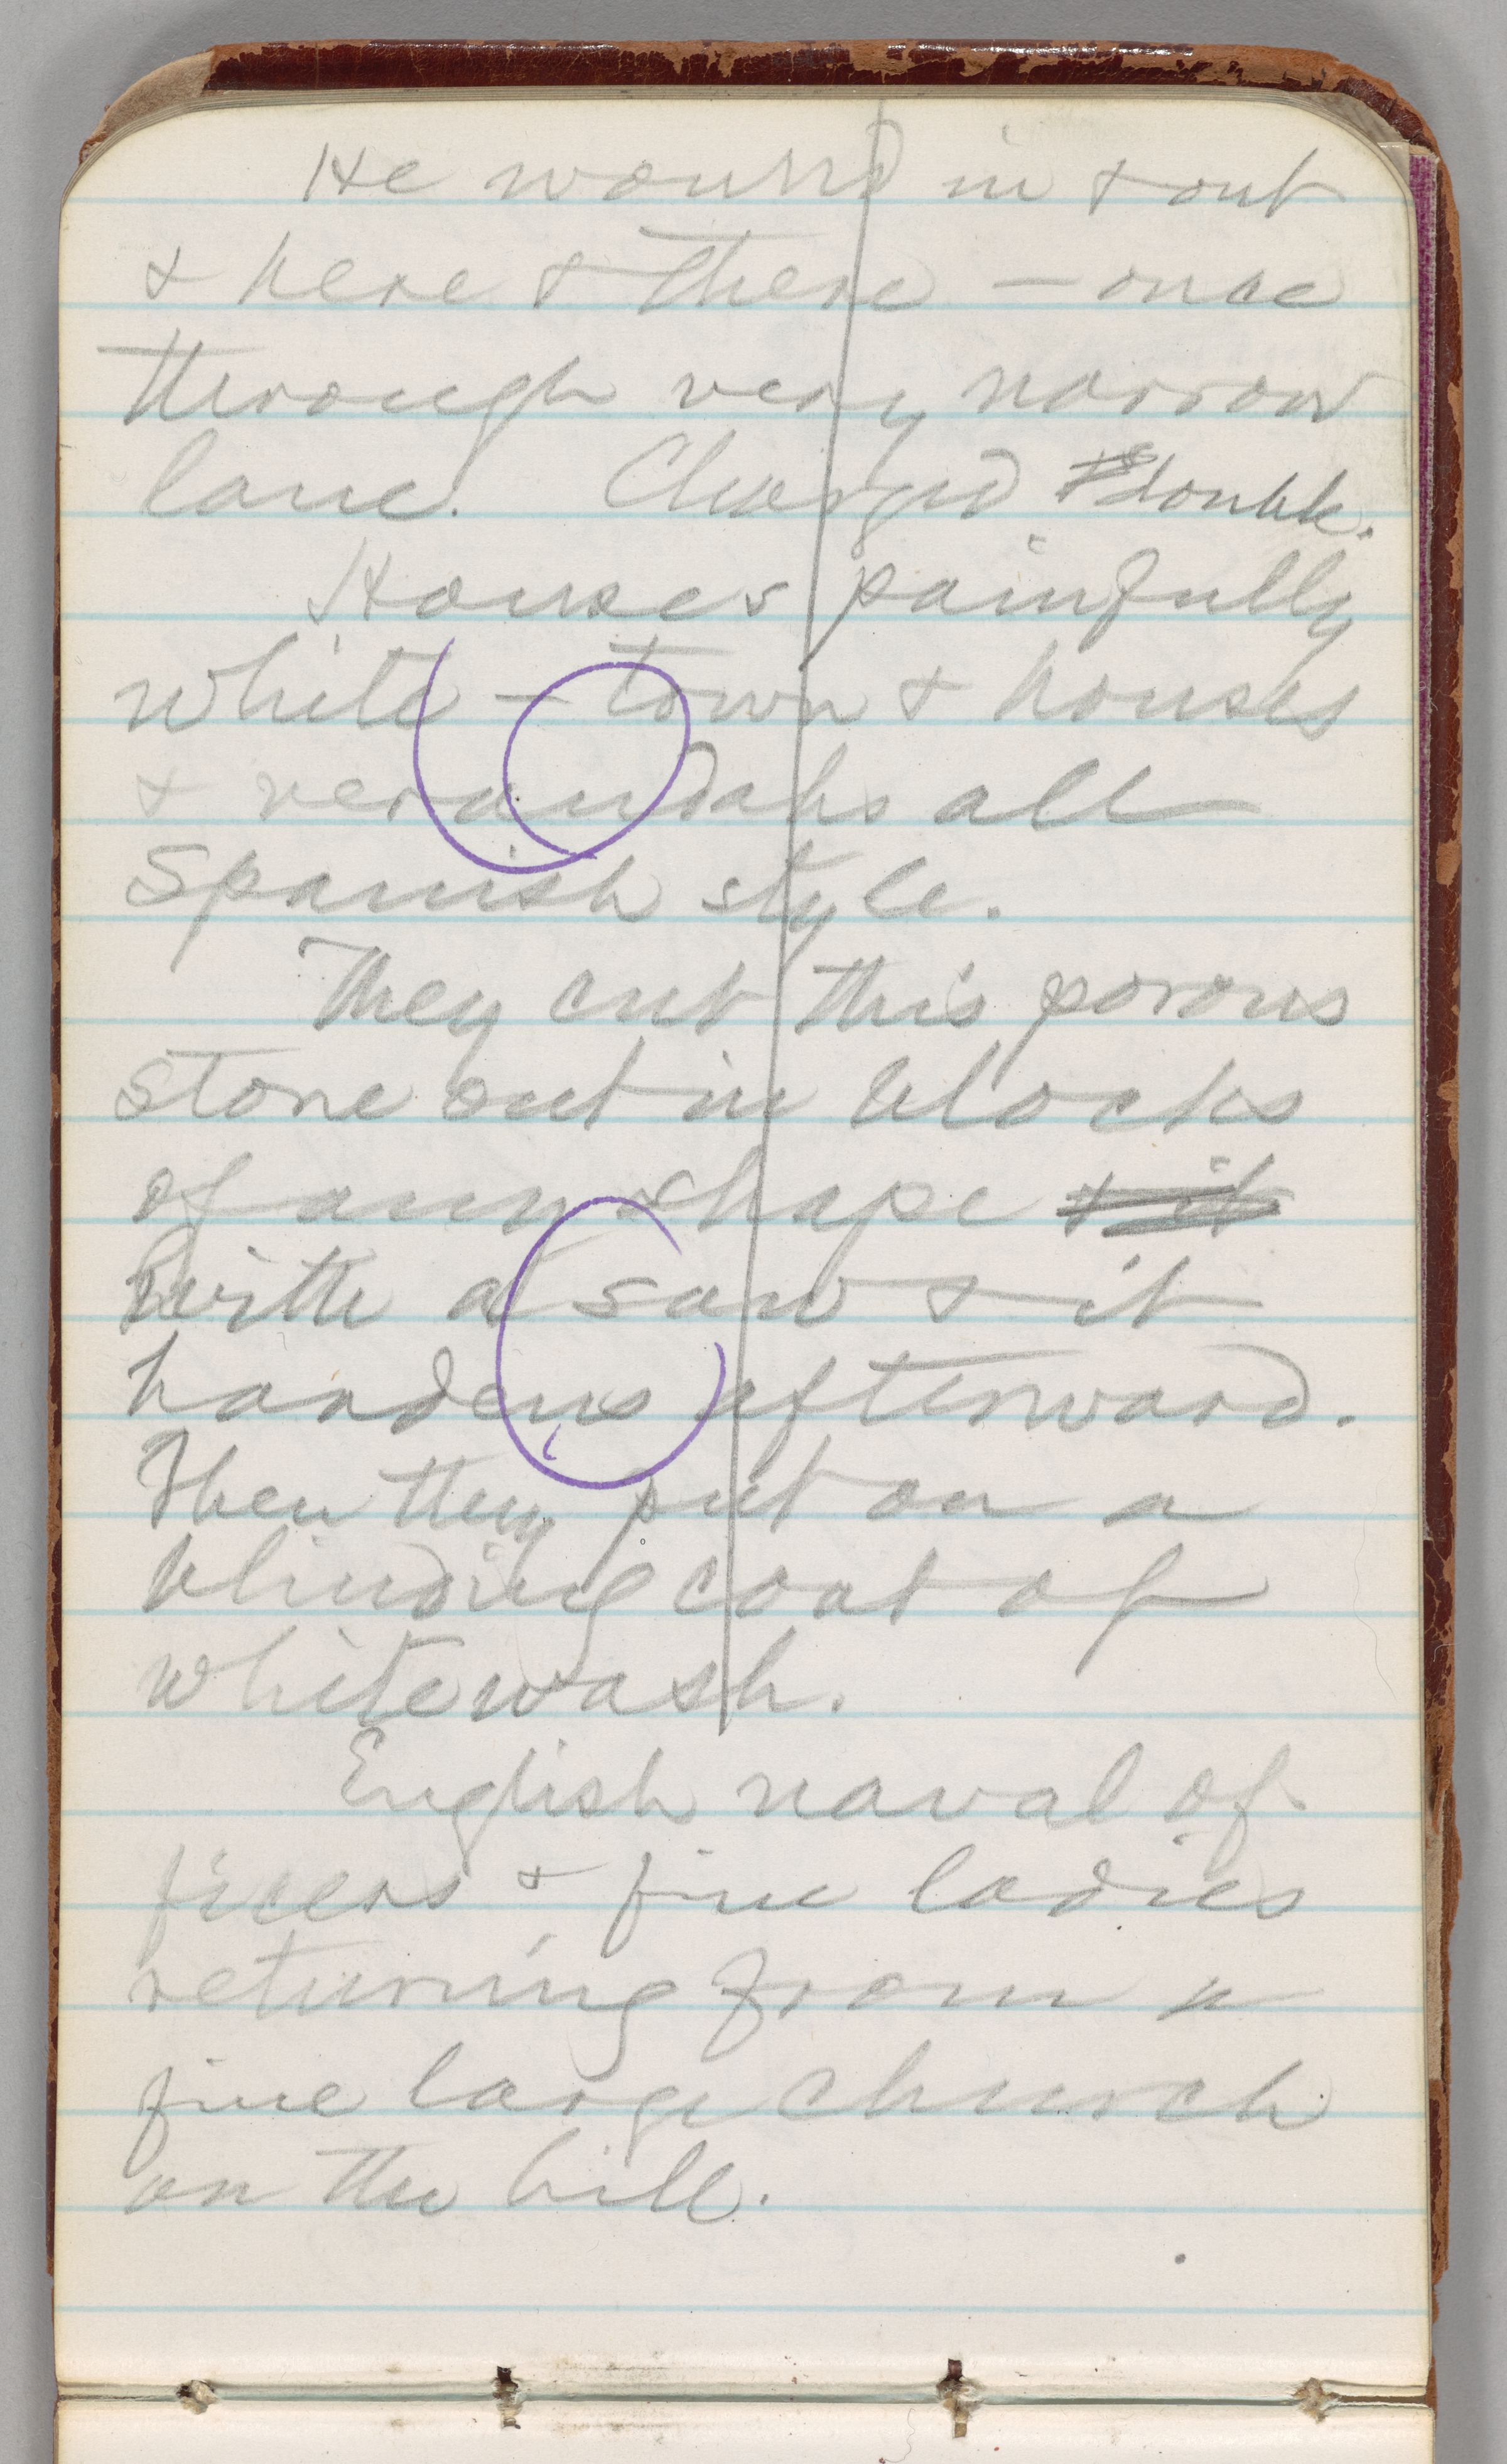 He wound in & out
& here & there — once
through very narrow
lane. Charged double.
Houses painfully
white — town & houses
& verandahs all
Spanish style.
They cut this porous
stone out in blocks
of any shape & it
with a saw & it
hardens afterward.
Then they put on a
blinding coat of
whitewash.
English naval of-
ficers & fine ladies
returning from a
fine large church
on the hill.